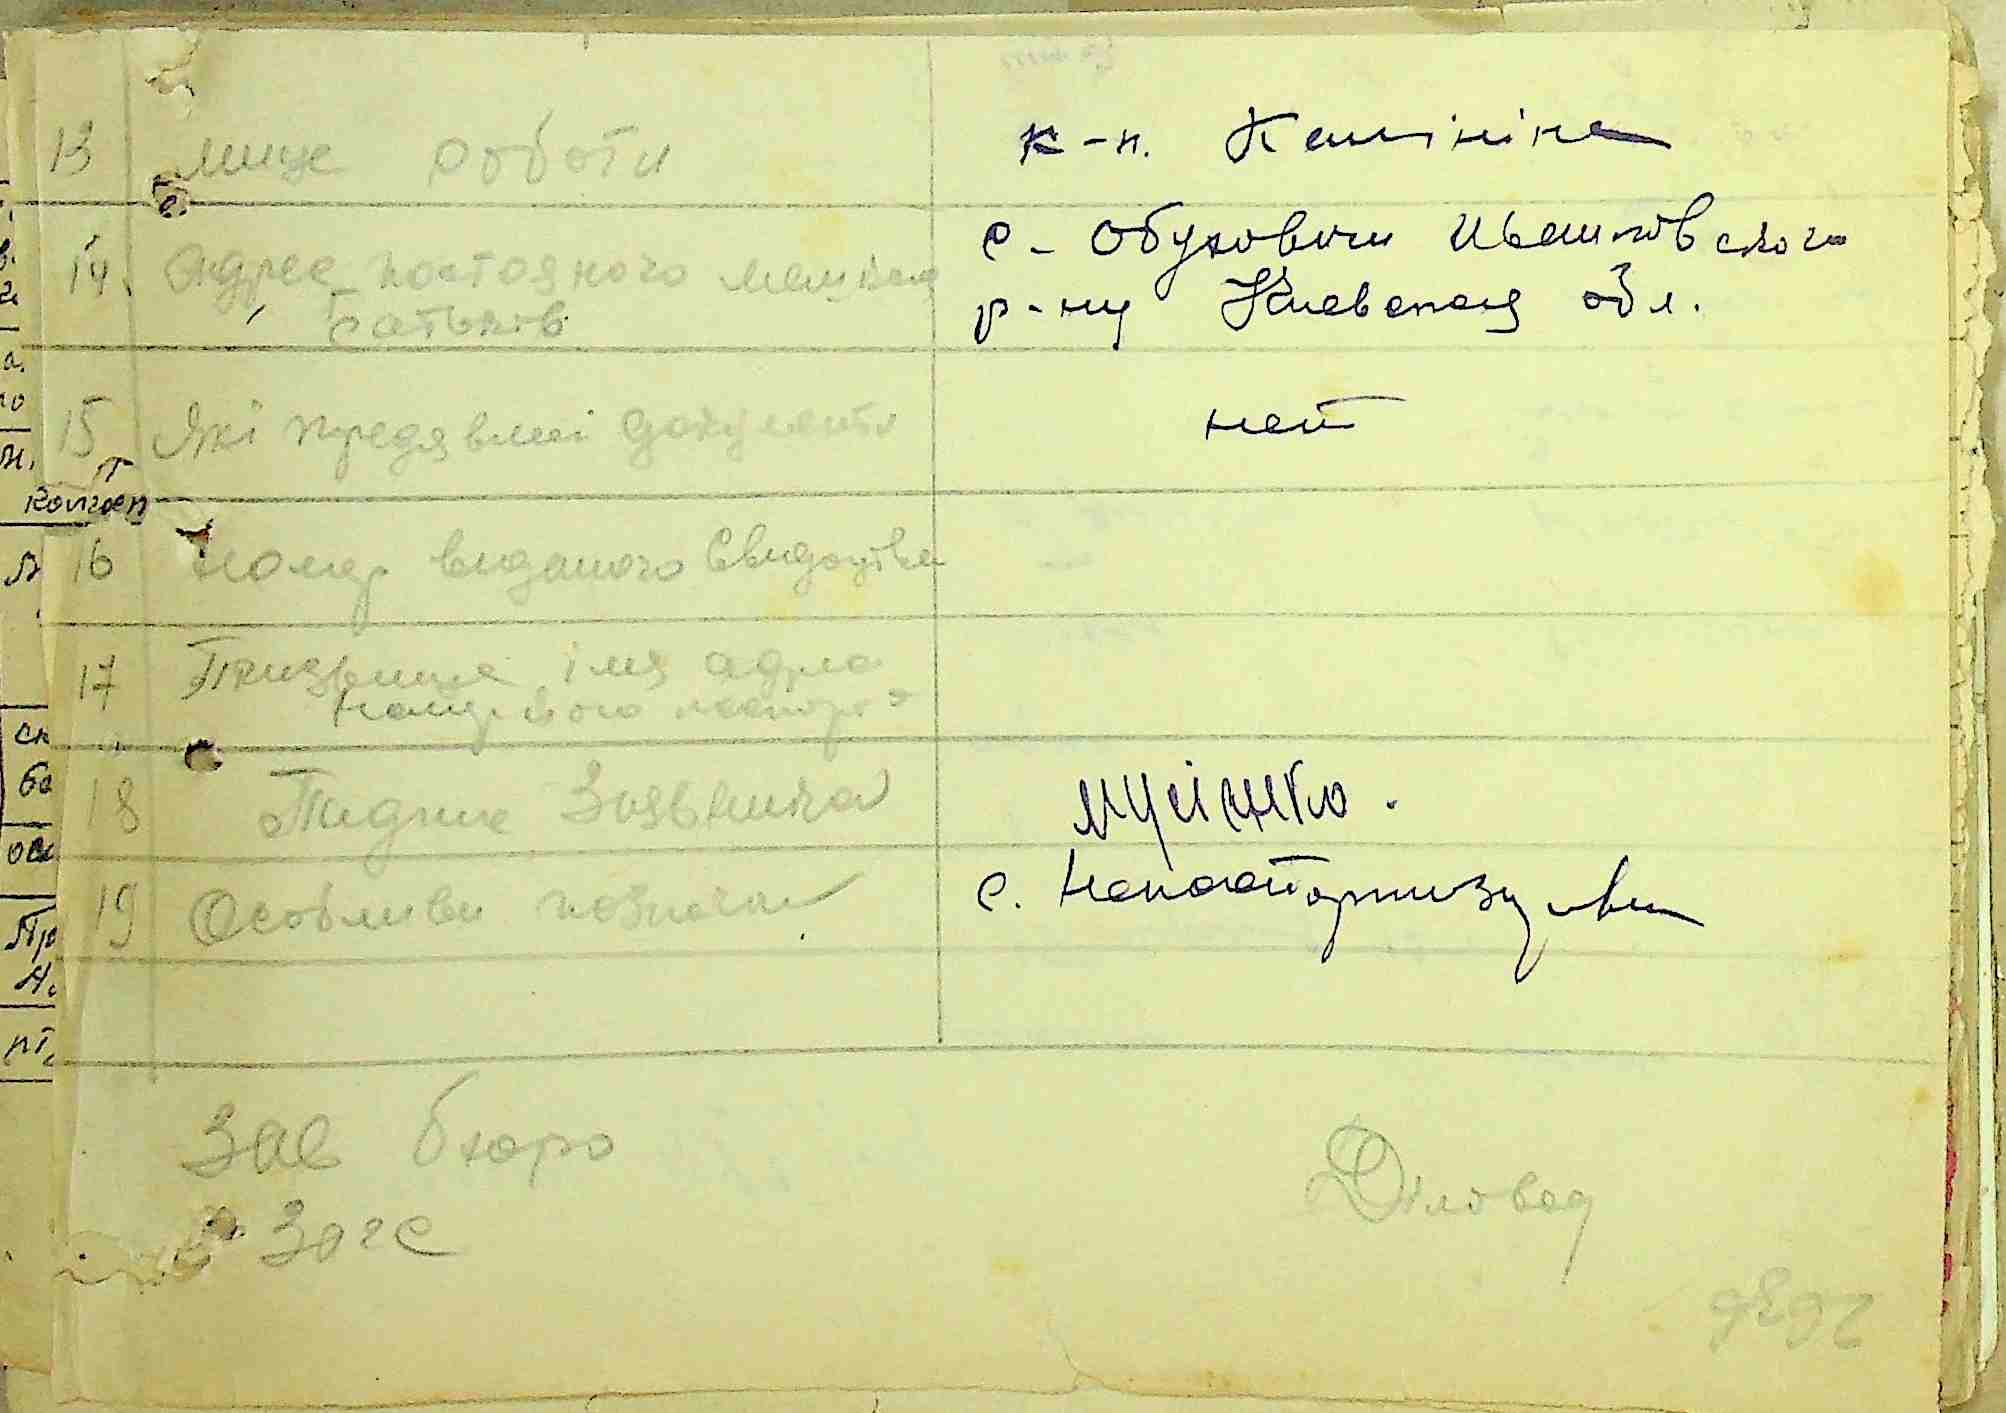 13 мисце роботи
к-п. Калініна
14. Адрес постояного мешкан
батьків
с- Обуховичи Иванковского
р-ну Киевская обл.
15 Які предявлені документи
нет
колгосп
16 Номер виданого Свидоцтва
17 Призвище імя адреса
Номер його паспорта
18 Підпис Заявника
Мусієнко.
19 Особливи позначки
с. Непаспортизуване
Зав бюро
Загс
Діловод